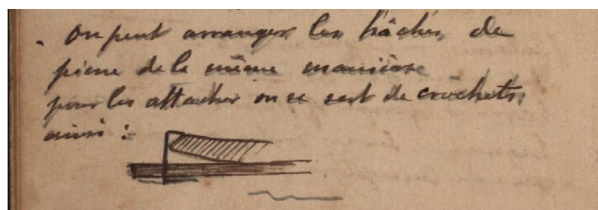 . On peut arranger les hâches de
pierre de la même manière
pour les attacher on se sert de crochets
ainsi :